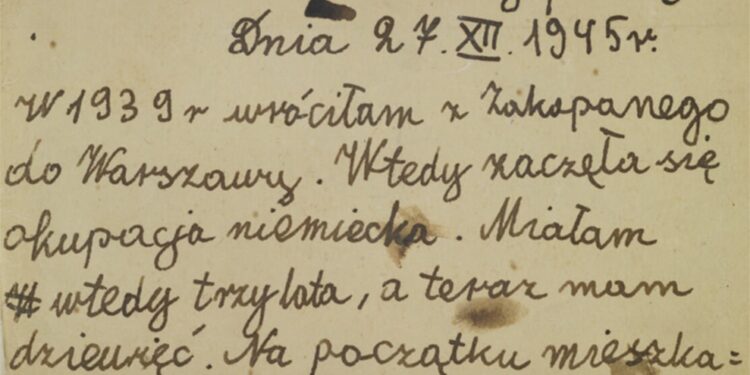 Dnia 27. XII. 1945r.
W 1939 r wróciłam z Zakopanego
do Warszawy. Wtedy zaczęła się
okupacja niemiecka. Miałam
wtedy trzy lata, a teraz mam
dziewięć. Na początku mieszka=